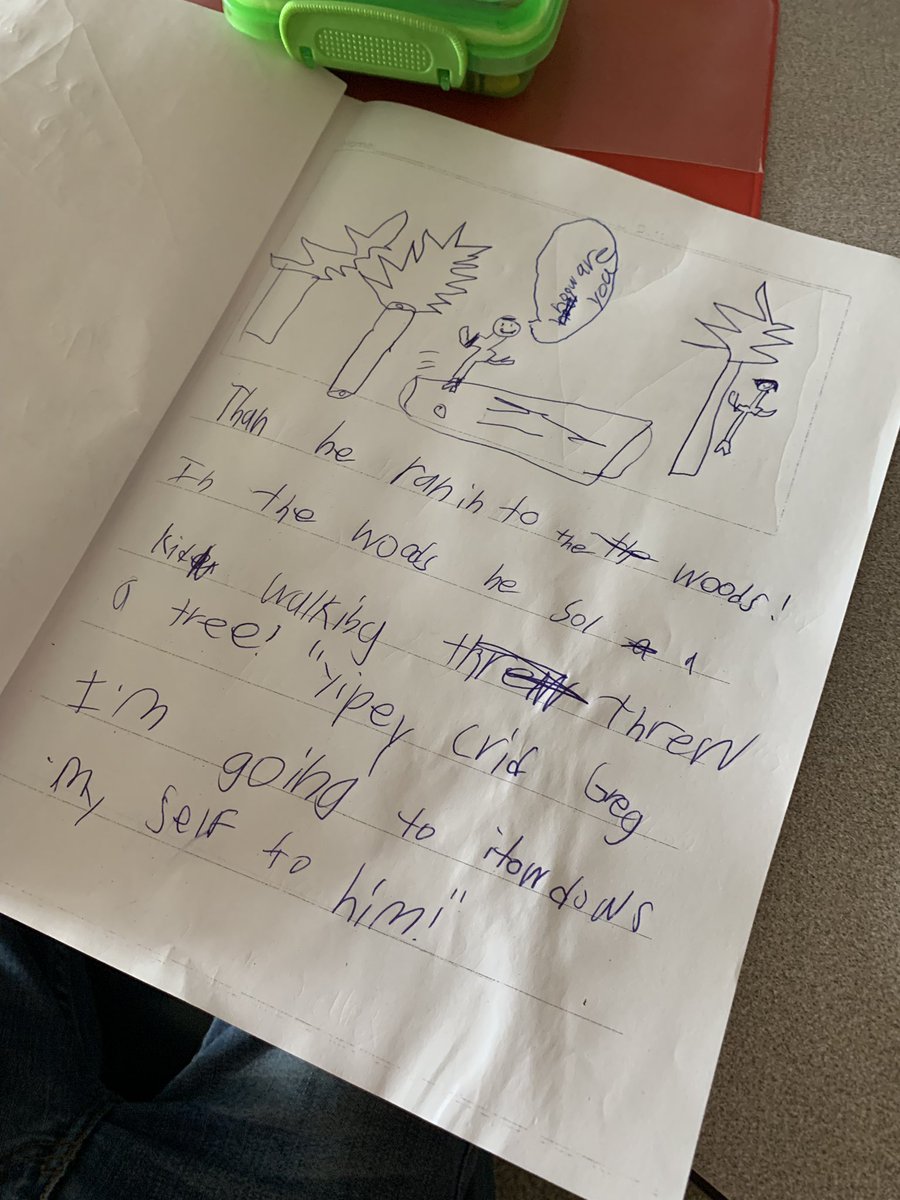 are
you
Than he ran in to the woods!
In the woods he sol a
kid walking threw
a tree! "Yipey crid Greg
I'm going to itowdows
my self to him!"